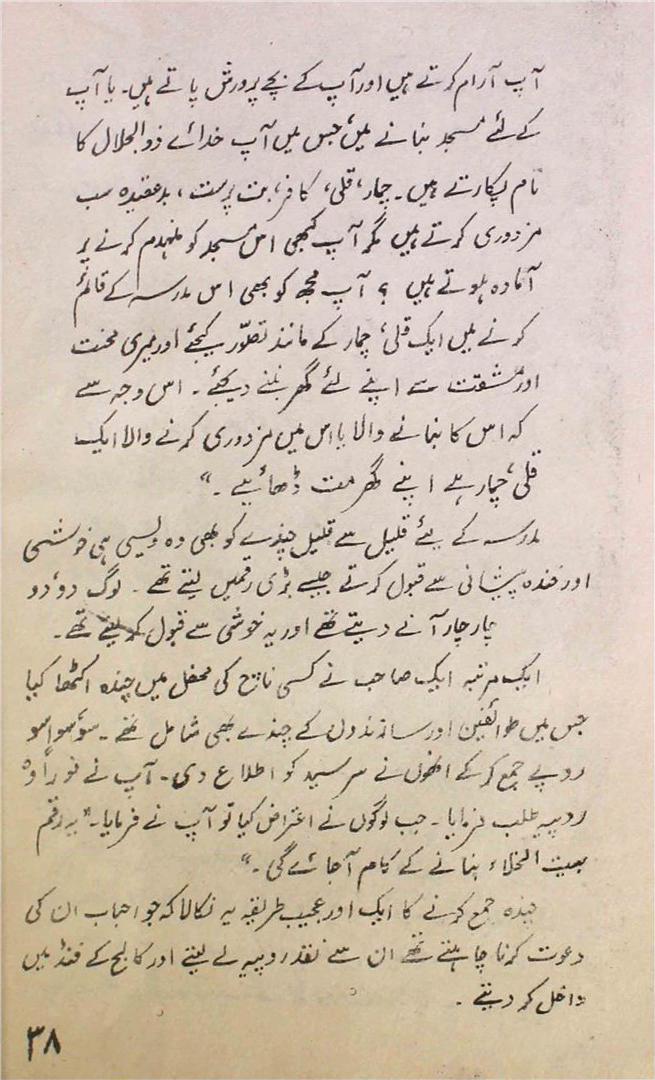 آپ آرام کرتے ہیں اور آپ کے بچے پرورش پاتے ہیں۔ یا آپ
کے لئے مسجد بنانے میں، جس میں آپ خدائے ذوالجلال کا
نام پکارتے ہیں۔ چمار، قلی، کافر، بت پرست، بدعقیدہ سب
مزدوری کرتے ہیں مگر آپ کبھی اس مسجد کو منہدم کرنے پر
آمادہ ہوتے ہیں ؟ آپ مجھ کو بھی اس مدرسہ کے قائم
کرنے میں ایک قلی، چمار کے مانند تصوّر کیجئے اور میری محنت
اور مشقت سے اپنے لئے گھر بننے دیجئے۔ اس وجہ سے
کہ اس کا بنانے والا یا اس میں مزدوری کرنے والا ایک
قلی، چمار ہے اپنے گھر مت ڈھائیے۔“
مدرسہ کے لئے قلیل سے قلیل چندے کو بھی وہ ویسی ہی خوشی
اور خندہ پیشانی سے قبول کرتے جیسے بڑی رقمیں لیتے تھے۔ لوگ دو، دو
چار چار آنے دیتے تھے اور یہ خوشی سے قبول کر لیتے تھے۔
ایک مرتبہ ایک صاحب نے کسی ناچ کی محفل میں چندہ اکٹھا کیا
جس میں طوائفیں اور سازندوں کے چندے بھی شامل تھے۔ سو سوا سو
روپے جمع کر کے انھوں نے سرسید کو اطلاع دی۔ آپ نے فوراً وہ
روپیہ طلب فرمایا۔ جب لوگوں نے اعتراض کیا تو آپ نے فرمایا۔ ”یہ رقم
بیت الخلاء بنانے کے کام آ جائے گی۔“
چندہ جمع کرنے کا ایک اور عجیب طریقہ یہ نکالا کہ جو احباب ان کی
دعوت کرنا چاہتے تھے ان سے نقد روپیہ لے لیتے اور کالج کے فنڈ میں
داخل کر دیتے۔
۳۸